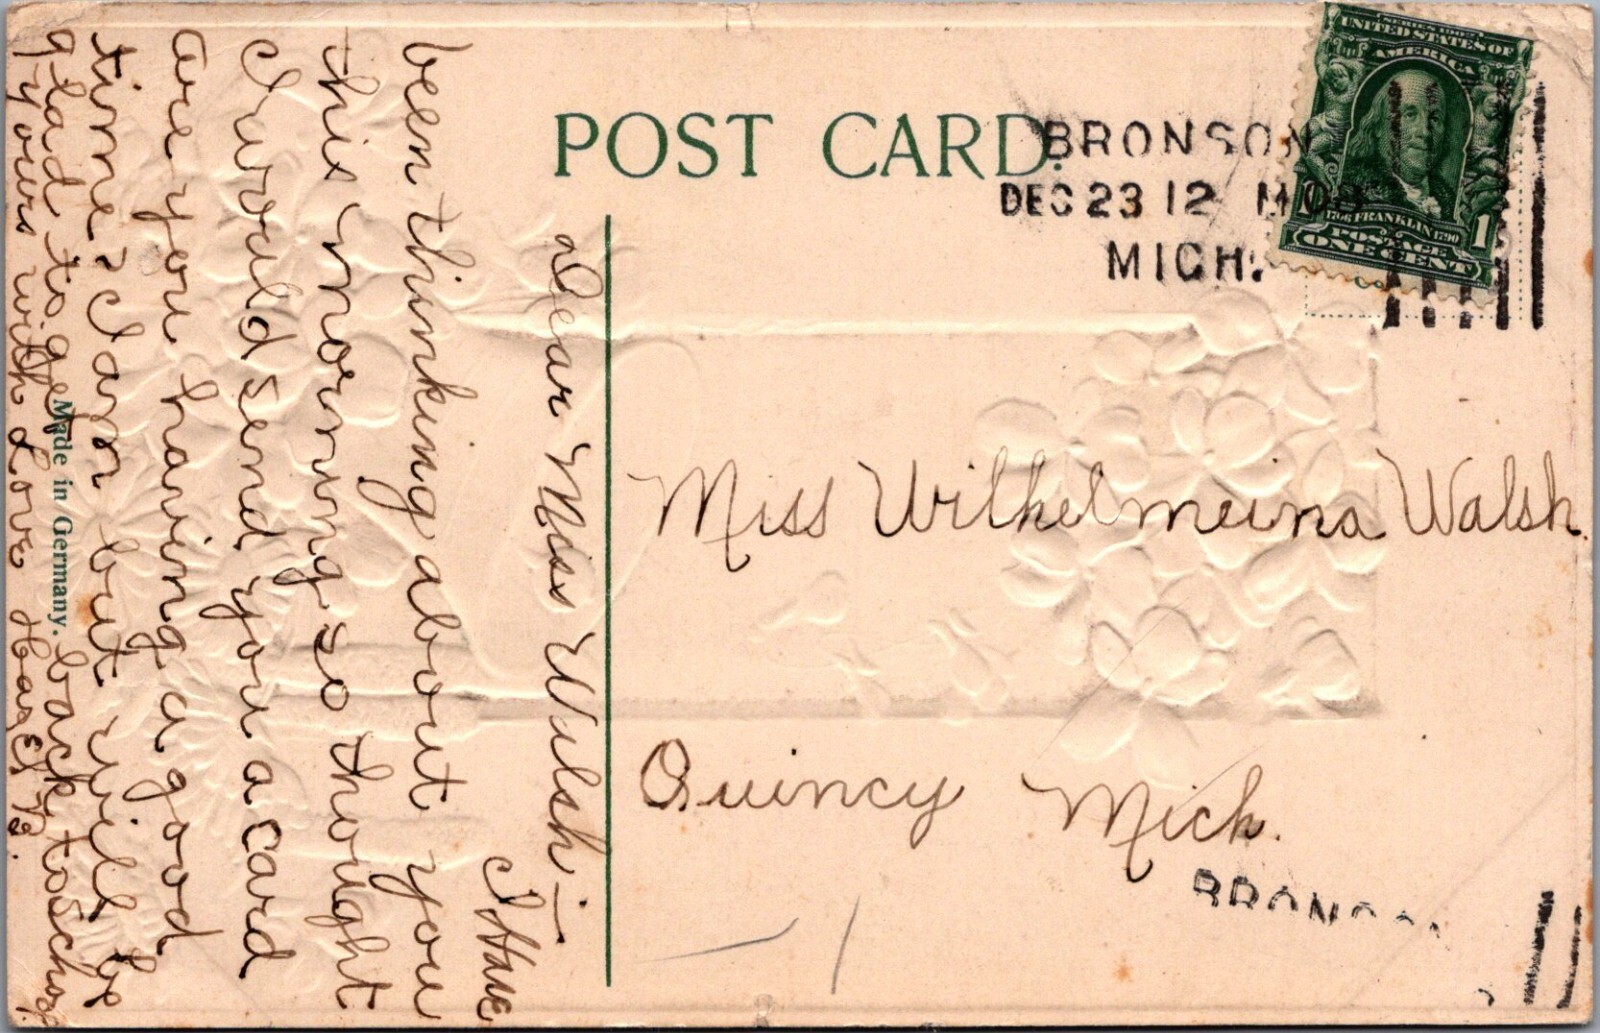 POST CARD.
BRONSON
DEC 23 12 M
MICH.
SERIES 1902
UNITED STATES OF
AMERICA
1706 FRANKLIN 1790
POSTAGE
ONE CENT
1
Dear Miss Walsh —
I Have
been thinking about you
this morning so thought
I would send you a card
are you having a good
time I am but will be
glad to get back to School
yours with Love Hazel P.
Made in Germany.
Miss Wilhelmeina Walsh.
Quincy Mich.
BRONSON